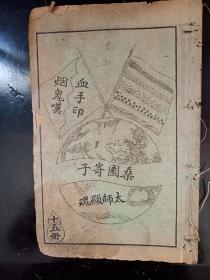 血手印
烟鬼嘆
桑園寄子
太師顯魂
十五册